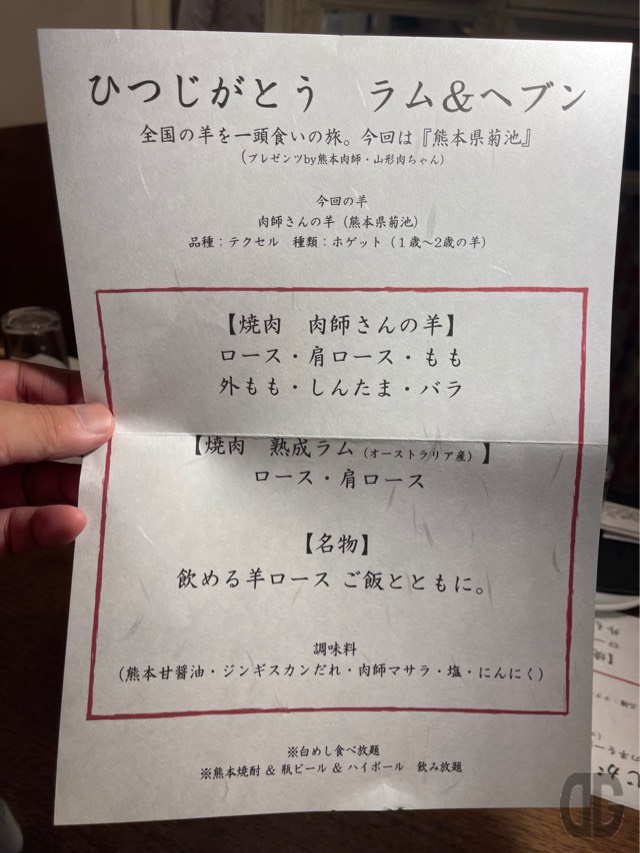 ひつじがとう ラム＆ヘブン
全国の羊を一頭食いの旅。今回は『熊本県菊池』
（プレゼンツby熊本肉師・山形肉ちゃん）
今回の羊
肉師さんの羊（熊本県菊池）
品種：テクセル 種類：ホゲット（１歳〜2歳の羊）
【焼肉 肉師さんの羊】
ロース・肩ロース・もも
外もも・しんたま・バラ
【焼肉 熟成ラム（オーストラリア産）】
ロース・肩ロース
【名物】
飲める羊ロース ご飯とともに。
調味料
（熊本甘醤油・ジンギスカンだれ・肉師マサラ・塩・にんにく）
※白めし食べ放題
※熊本焼酎 & 瓶ビール & ハイボール 飲み放題